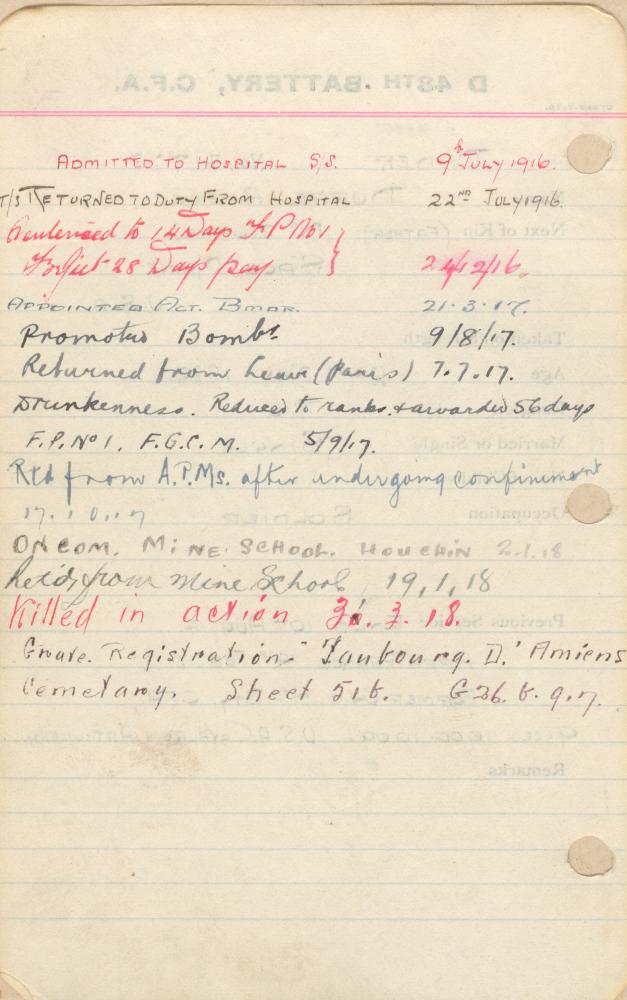 D 48TH. BATTERY, C.F.A.
ADMITTED TO HOSPITAL S/S. 9th JULY 1916.
T/S RETURNED TO DUTY FROM HOSPITAL 22ND JULY 1916.
Sentenced to 14 Days F P No 1 }
Forfeit 28 Days pay } 24/12/16.
APPOINTED ACT. BMDR. 21.3.17.
Promoted Bombr 9/8/17.
Returned from Leave (Paris) 7.7.17.
Drunkenness. Reduced to ranks & awarded 56 days
F.P. No 1. F.G.C.M. 5/9/17.
Rtd from A.P.Ms. after undergoing confinement
17.10.17
ON COM. MINE SCHOOL. HOUCHIN 2.1.18
Ret'd from Mine School, 19,1,18
Killed in action 3. 18.
Grave. Registration. "Faubourg. D.' Amiens
Cemetary. Sheet 51b. G26.b.9.7.
Next of Kin (FATHER)
Age
Married or Single
Occupation SOLDIER
Previous
Remarks